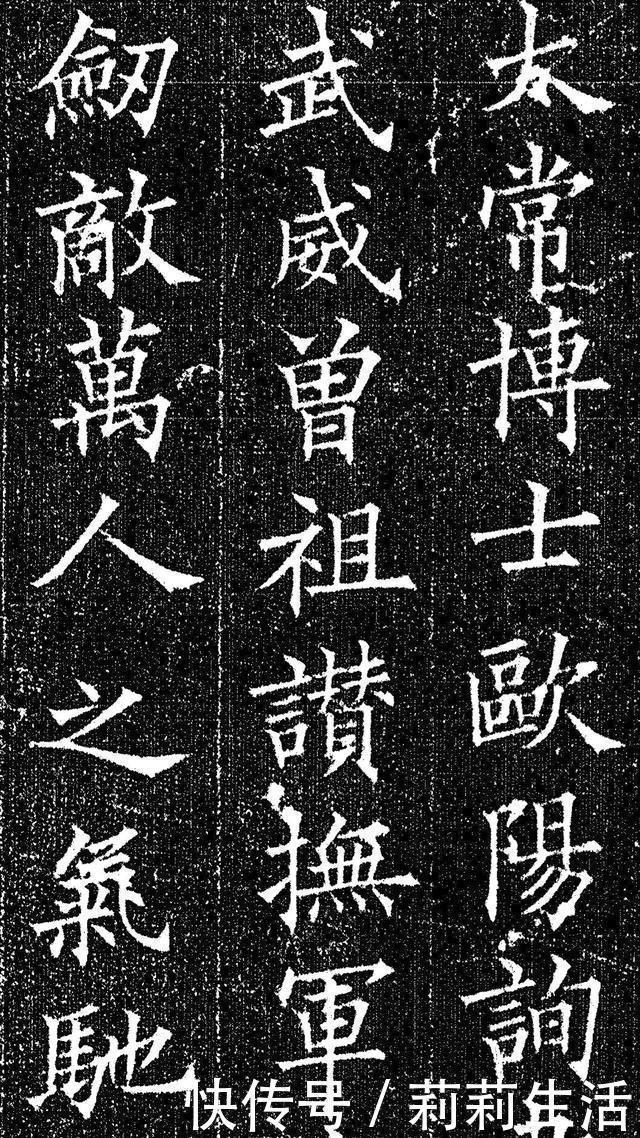 太常博士歐陽詢
武威曾祖讃撫軍
劒敵萬人之氣馳
快传号/莉莉生活